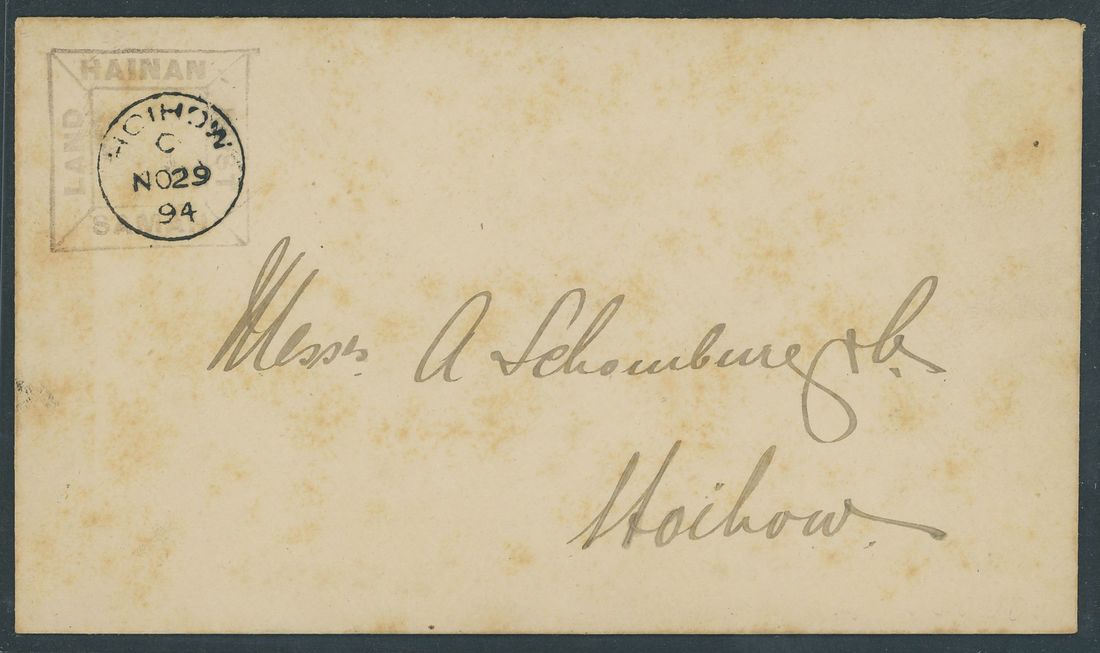 HAINAN
LAND
HOIHOW
C
NO29
94
Messrs A Schomburg & Co.
Hoihow